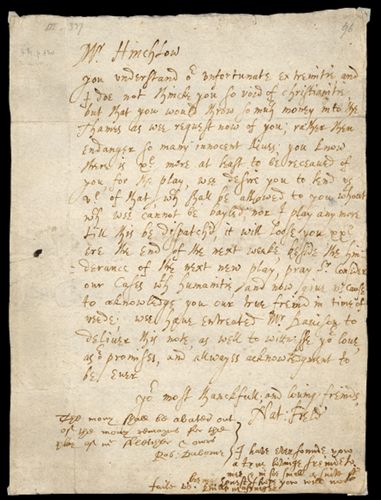 Mr Hinchlow
you vnderstand or vnfortunate extremitie and
I doe not thincke you so void of christianitie
but that you would throw so much money into the
Thames as wee request now of you; rather then
endanger so many innocent liues; you know
there is xl more at least to be receaued of
you for the play, wee desire you to lend vs
vl of that, wch shall be allowed to you without
wch wee cannot be bayled, nor I play any more
till this be dispatch'd, it will loose you xxl
ere the end of the next weeke, beside the hin=
derance of the next new play, pray Sr Consider
our Cases wth humanitie, and now giue vs cause
to acknowledge you our true freind in time of
neede; wee haue entreated Mr Dauison to
deliuer this note, as well to wittnesse yor loue,
as or promises, and allwayes acknowledgment to
be euer
yor most thanckfull, and louing freinds,
Nat: Field
The mony shall be abated out
of the mony remayns for the
play of mr Fletcher & owrs
Rob: Daborne
I haue euer founde you
a true louinge freinde to
mee & in soe small a suite
beeinge honest I hope you will not
faile vs